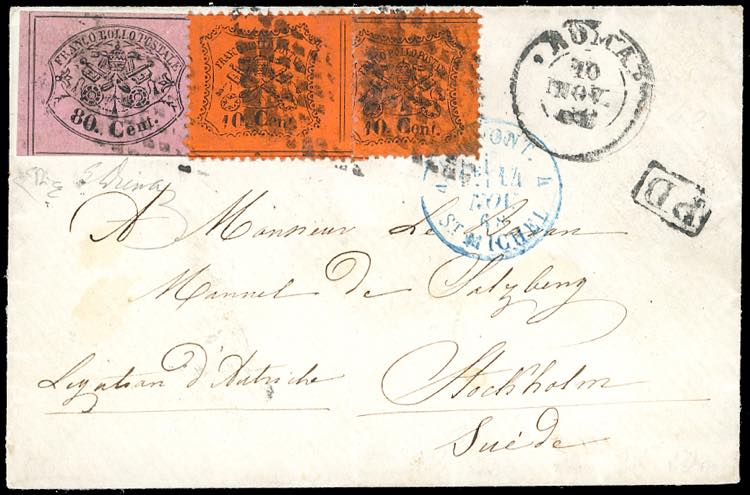 FRANCO BOLLO POSTALE
80. Cent.
FRANCO BOLLO POSTALE
10. Cent.
FRANCO BOLLO POSTALE
10. Cent.
ROMA
10
NOV.
PONT.
4 4
14
NOV
68
ST MICHEL
PD
E Diena
A Monsieur Le Baron
Manuel de Salzberg
Légation d'Autriche Stockholm
Suéde